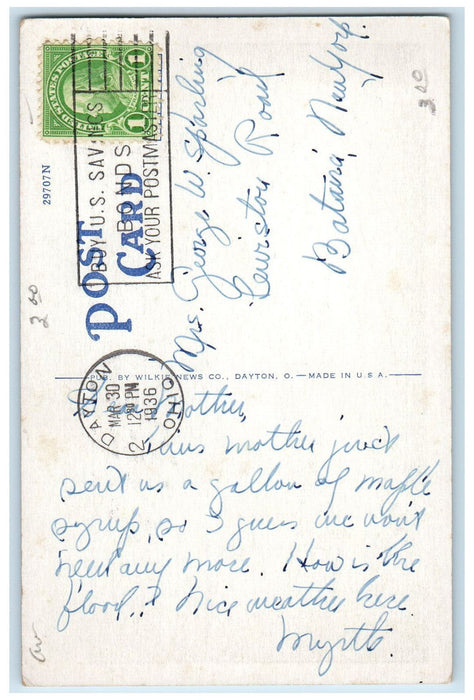 UNITED STATES POSTAGE
1 CENT 1
BUY U.S. SAVINGS
BONDS
ASK YOUR POSTMASTER
29707N
POST
CARD
Mrs. George W. Sparling
Lewiston Road
Batavia, New York
3 00
3 00
PUB. BY WILKIE NEWS CO., DAYTON, O. — MADE IN U.S.A.
DAYTON
MAR 30
12 PM
1936
OHIO
2
Dear Mother,
mother just
sent us a gallon of maple
syrup, so I guess we won't
need any more. How is the
flood? Nice weather here.
Myrtle.